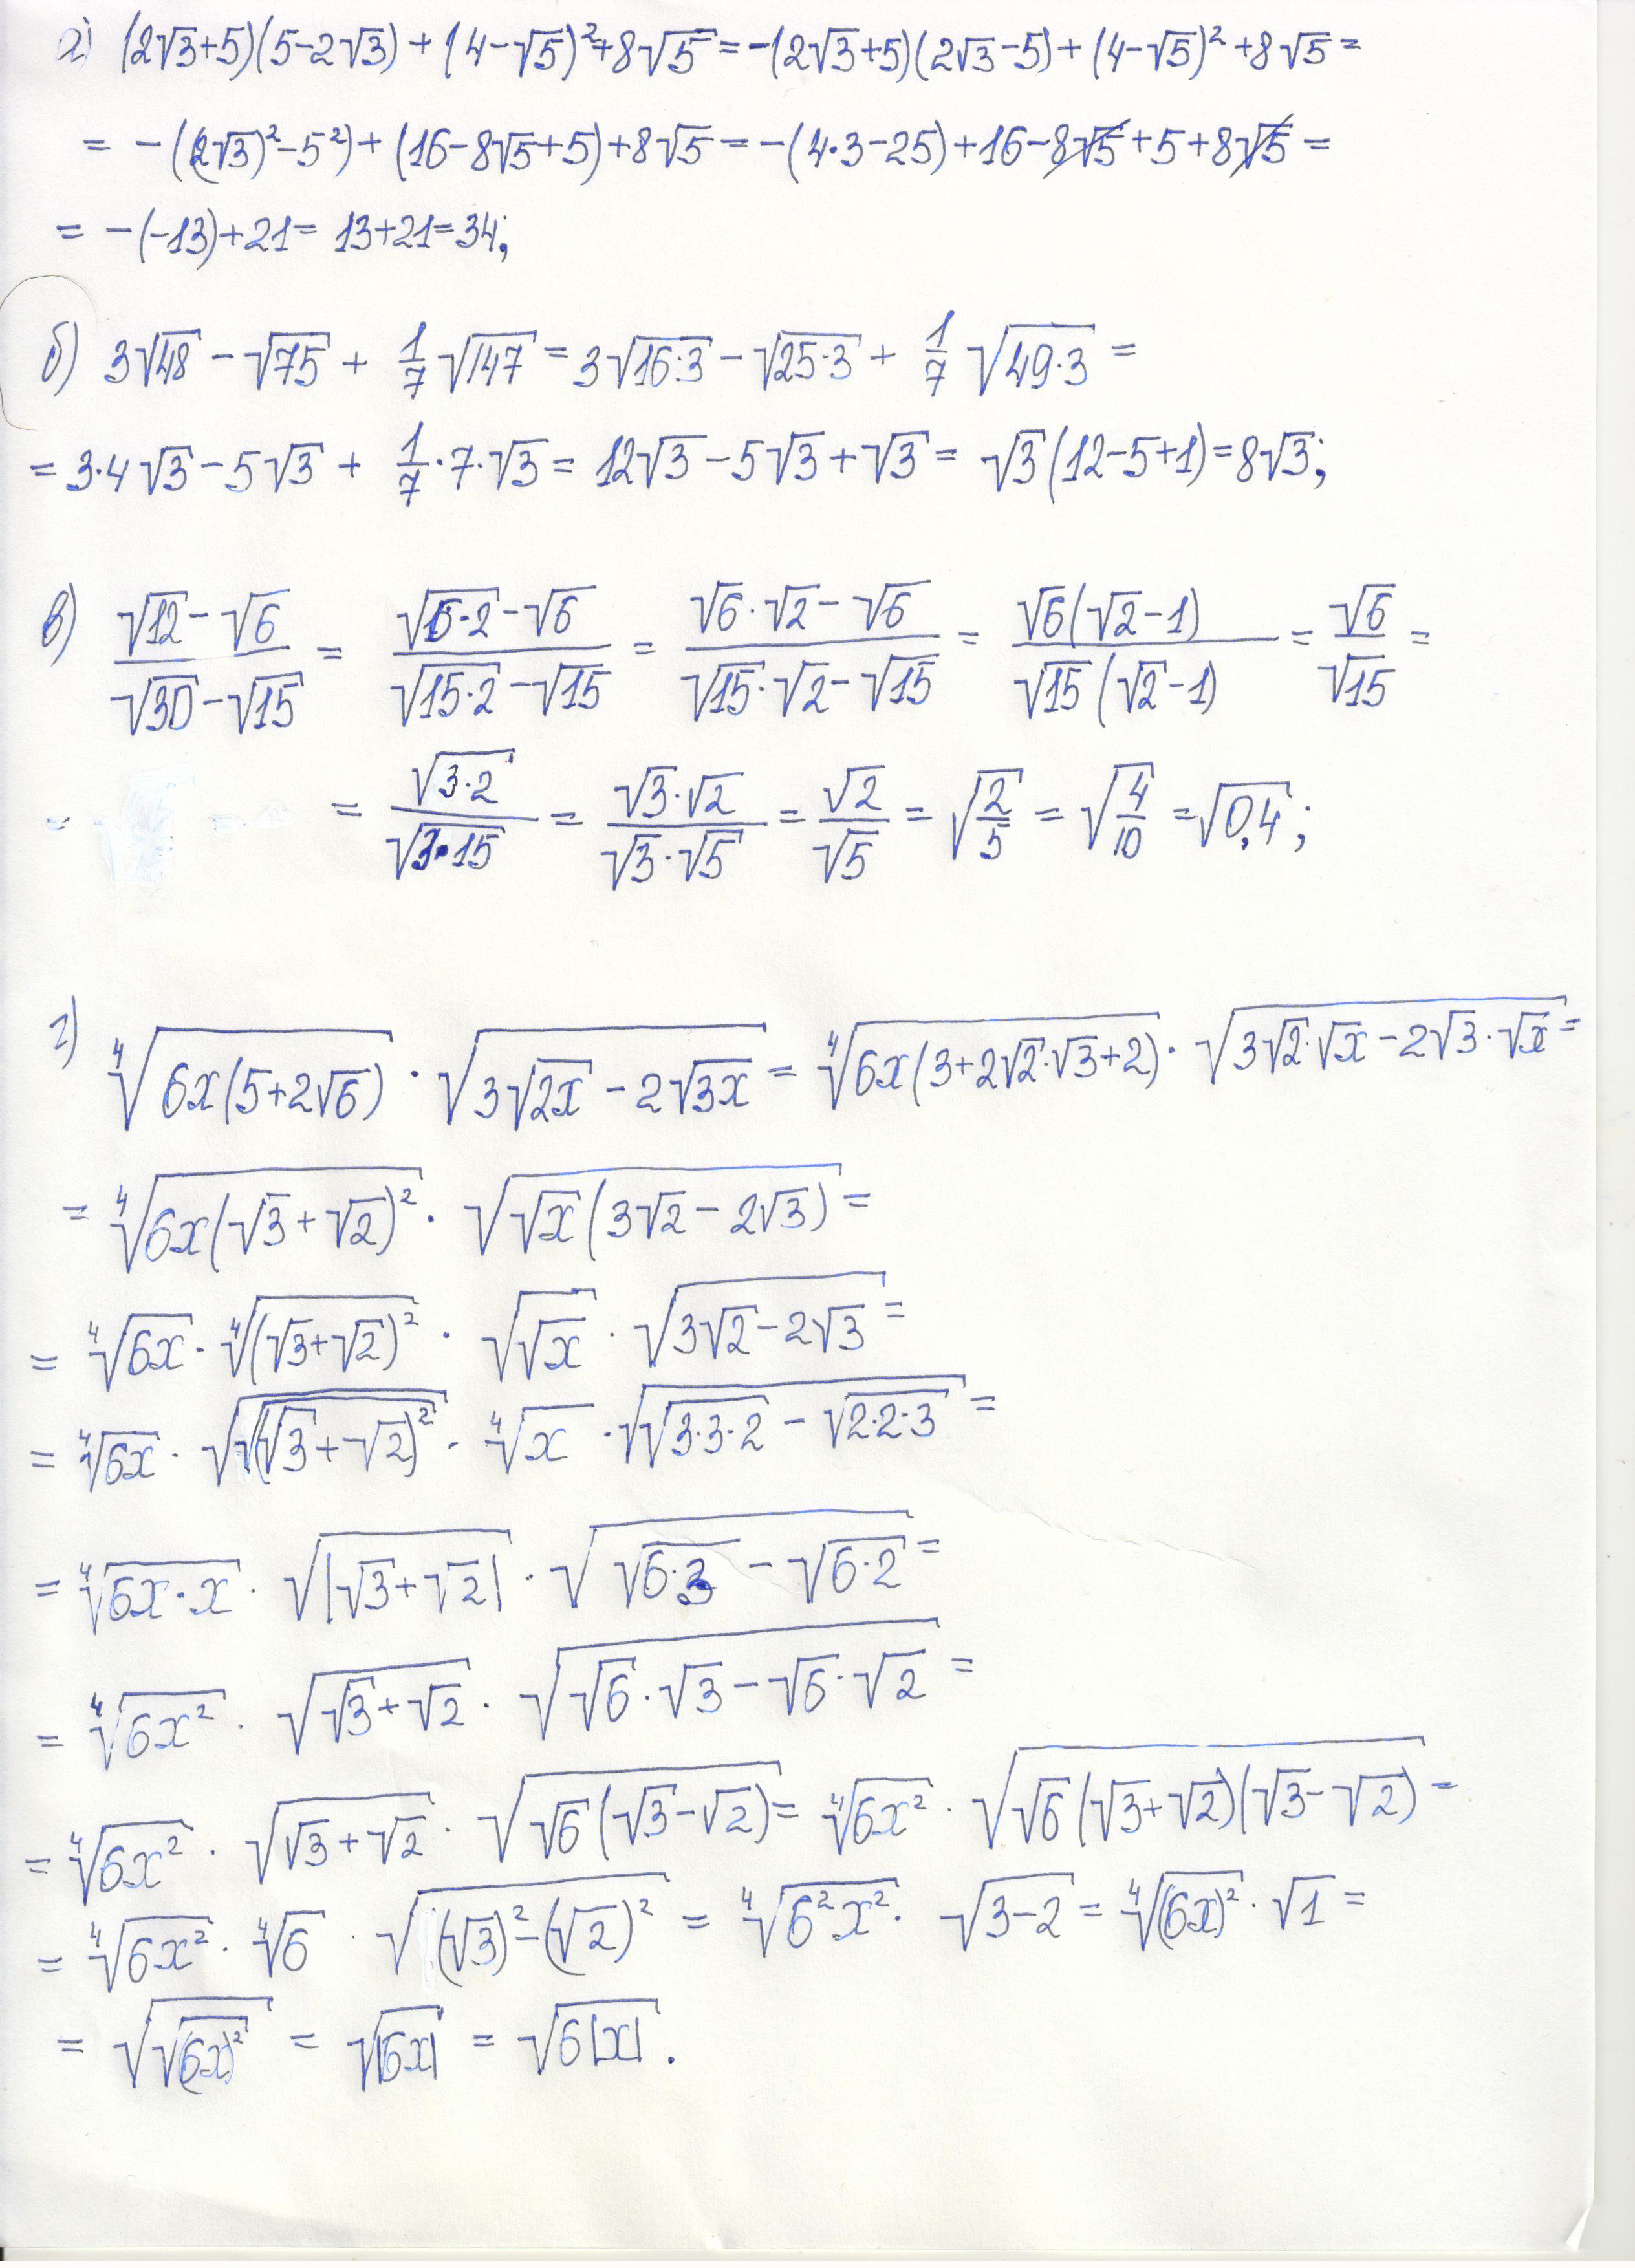 а) (2√3+5)(5-2√3) + (4-√5)²+8√5 = -(2√3+5)(2√3-5)+(4-√5)²+8√5 =
= -((2√3)²-5²)+(16-8√5+5)+8√5 = -(4·3-25)+16-8√5+5+8√5 =
= -(-13)+21= 13+21=34;
б) 3√48 - √75 + 1/7 √147 = 3√(16·3) - √(25·3) + 1/7 √(49·3) =
= 3·4√3 - 5√3 + 1/7·7·√3 = 12√3 - 5√3 + √3 = √3(12-5+1) = 8√3;
в) (√12 - √6)/(√30 - √15) = (√(6·2) - √6)/(√(15·2) - √15) = (√6·√2 - √6)/(√15·√2 - √15) = (√6(√2-1))/(√15(√2-1)) = √6/√15 =
= √(3·2)/√(3·15) = (√3·√2)/(√3·√5) = √2/√5 = √(2/5) = √(4/10) = √0,4;
г) ⁴√(6x(5+2√6)) · √(3√(2x) - 2√(3x)) = ⁴√(6x(3+2√2·√3+2)) · √(3√2·√x - 2√3·√x) =
= ⁴√(6x(√3+√2)²) · √(√x(3√2 - 2√3)) =
= ⁴√(6x) · ⁴√((√3+√2)²) · √(√x) · √(3√2 - 2√3) =
= ⁴√(6x) · √(√((√3+√2)²)) · ⁴√x · √(√(3·3·2) - √(2·2·3)) =
= ⁴√(6x·x) · √(|√3+√2|) · √(√(6·3) - √(6·2)) =
= ⁴√(6x²) · √(√3+√2) · √(√6·√3 - √6·√2) =
= ⁴√(6x²) · √(√3+√2) · √(√6(√3-√2)) = ⁴√(6x²) · √(√6(√3+√2)(√3-√2)) =
= ⁴√(6x²) · ⁴√6 · √((√3)²-(√2)²) = ⁴√(6²x²) · √(3-2) = ⁴√((6x)²) · √1 =
= √(√((6x)²)) = √(|6x|) = √(6|x|).